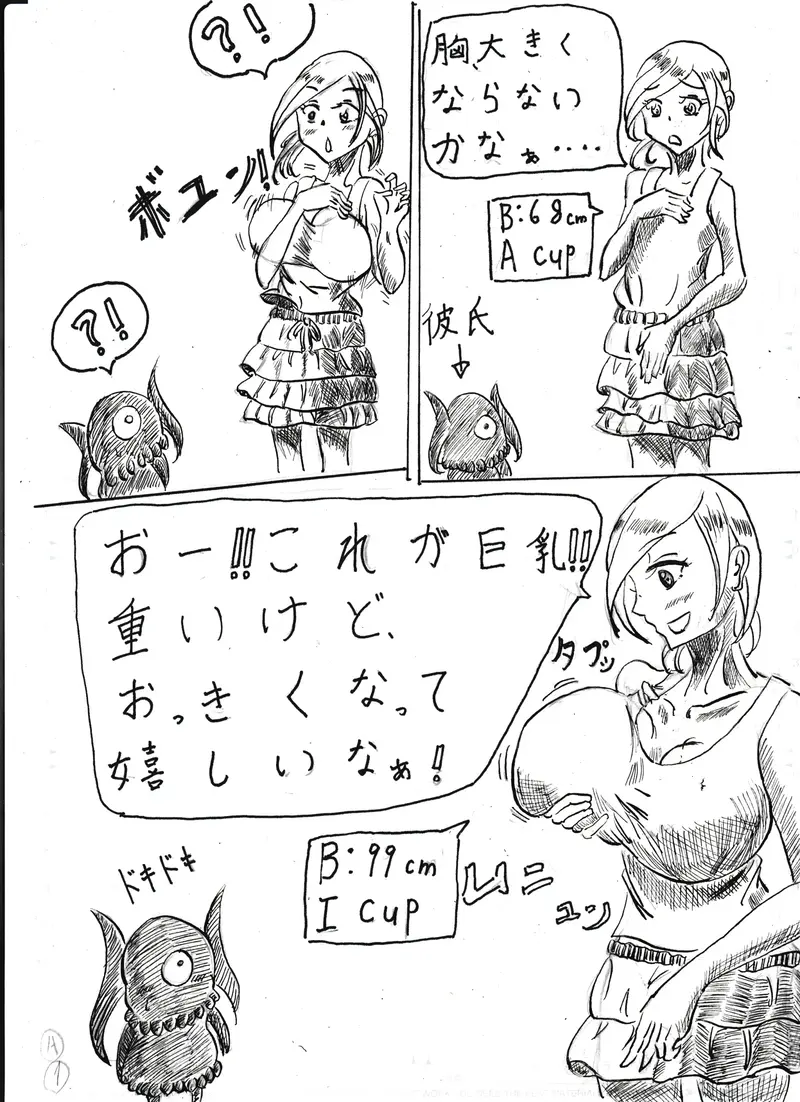 胸、大きく
ならない
かなぁ‥‥
B:68cm
A cup
彼氏
?!
ボユン!!
?!
おー!!これが巨乳!!
重いけど、
おっきくなって
嬉しいなぁ!
タプッ
B:99cm
I cup
ムニ
ュン
ドキドキ
A
1